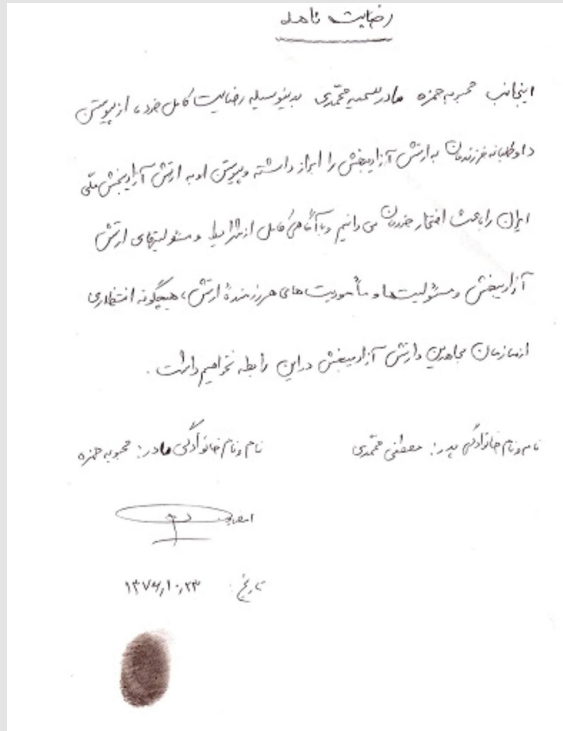 رضایت نامه
اینجانب محبوبه حمزه مادر سمیه محمدی بدینوسیله رضایت کامل خود، از پیوستن
داوطلبانه فرزندمان به ارتش آزادیبخش را ابراز داشته و پیوستن او به ارتش آزادیبخش ملی
ایران را باعث افتخار خودمان می دانیم و با آگاهی کامل از شرایط و مسئولیتهای ارتش
آزادیبخش و مسئولیت ها و مأموریت های هر رزمندهٔ ارتش، هیچگونه انتظاری
از سازمان مجاهدین و ارتش آزادیبخش در این رابطه نخواهیم داشت.
نام و نام خانوادگی پدر: مصطفی محمدی نام و نام خانوادگی مادر: محبوبه حمزه
امضاء
تاریخ: ۱۳۷۶،۱۰،۲۳